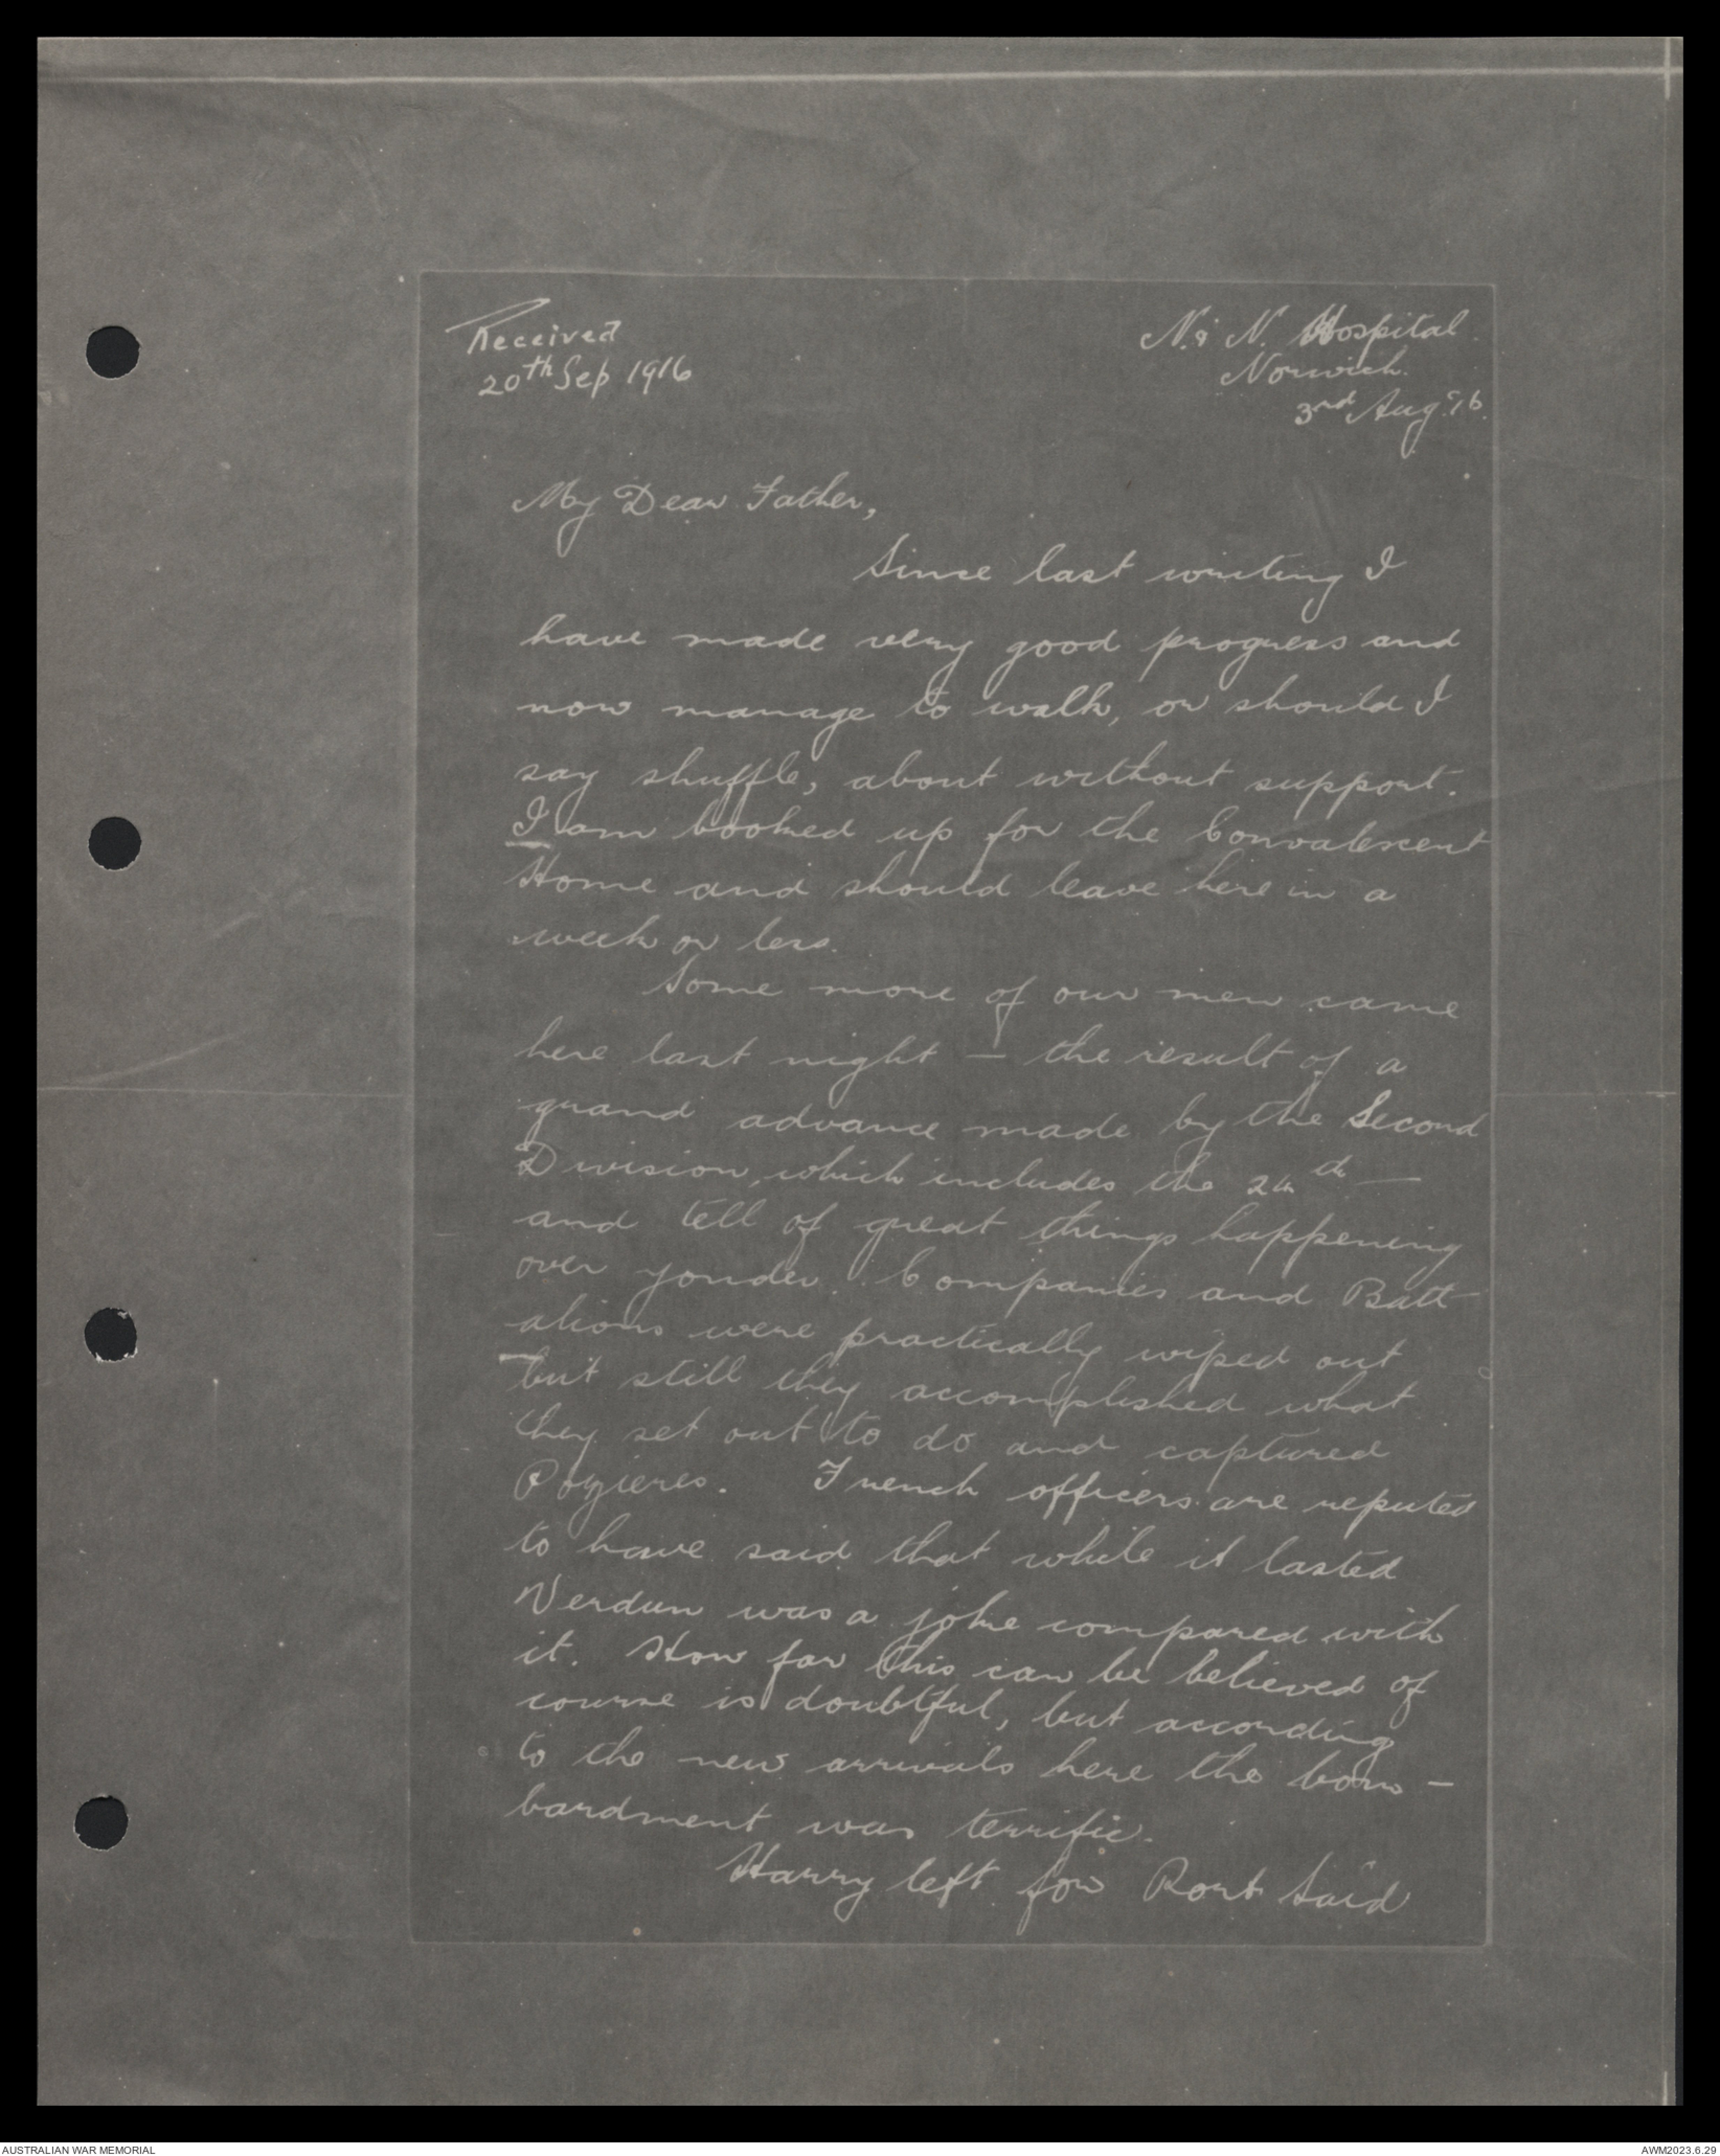 Received
20th Sep 1916
N. & N. Hospital.
Norwich.
3rd Aug. '16.
My Dear Father,
Since last writing I
have made very good progress and
now manage to walk, or should I
say shuffle, about without support.
I am booked up for the Convalescent
Home and should leave here in a
week or less.
Some more of our men came
here last night – the result of a
grand advance made by the Second
Division, which includes the 24th –
and tell of great things happening
over yonder. Companies and Batt-
alions were practically wiped out
but still they accomplished what
they set out to do and captured
Pozieres. French officers are reputed
to have said that while it lasted
Verdun was a joke compared with
it. How far this can be believed of
course is doubtful, but according
to the new arrivals here the bom-
bardment was terrific.
Harry left for Port Said
AUSTRALIAN WAR MEMORIAL
AWM2023.6.29